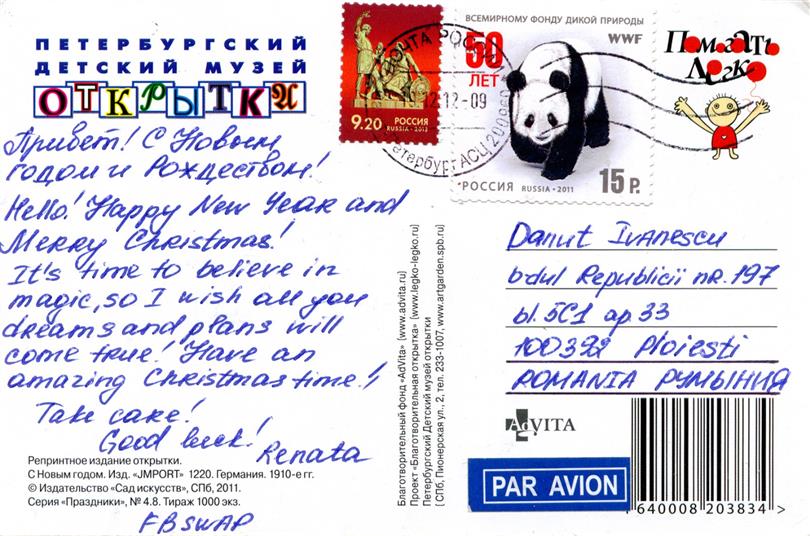 ПЕТЕРБУРГСКИЙ
ДЕТСКИЙ МУЗЕЙ
ОТКРЫТКИ
Привет! С Новым
годом и Рождеством!
Hello! Happy New Year and
Merry Christmas!
It's time to believe in
magic, so I wish all you
dreams and plans will
come true! Have an
amazing Christmas time!
Take care!
Good luck!
Renata
Репринтное издание открытки.
С Новым годом. Изд. «JMPORT» 1220. Германия. 1910-е гг.
© Издательство «Сад искусств», СПб, 2011.
Серия «Праздники», № 4.8. Тираж 1000 экз.
FB SWAP
Благотворительный фонд «AdVita» (www.advita.ru)
Проект «Благотворительная открытка» (www.legko-legko.ru)
Петербургский Детский музей открытки
(СПб, Пионерская ул., 2, тел. 233-1007, www.artgarden.spb.ru)
9.20 РОССИЯ
RUSSIA • 2013
ПОЧТА
12.12-09
Петербург АСЦ 200960
ВСЕМИРНОМУ ФОНДУ ДИКОЙ ПРИРОДЫ
50
ЛЕТ
WWF
РОССИЯ RUSSIA • 2011 15 Р.
Помогать
Легко
Danut Ivanescu
b-dul Republicii nr. 197
bl. 5C1 ap 33
100392 Ploiesti
ROMANIA РУМЫНИЯ
AdVITA
PAR AVION
4640008203834 >